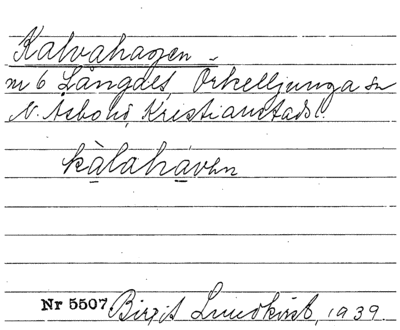 Kalvahagen
nr 6 Långalt, Örkelljunga sn
N. Åsbo hd, Kristianstads l.
kàlahávən
Nr 5507 Birgit Lundkvist, 1939.